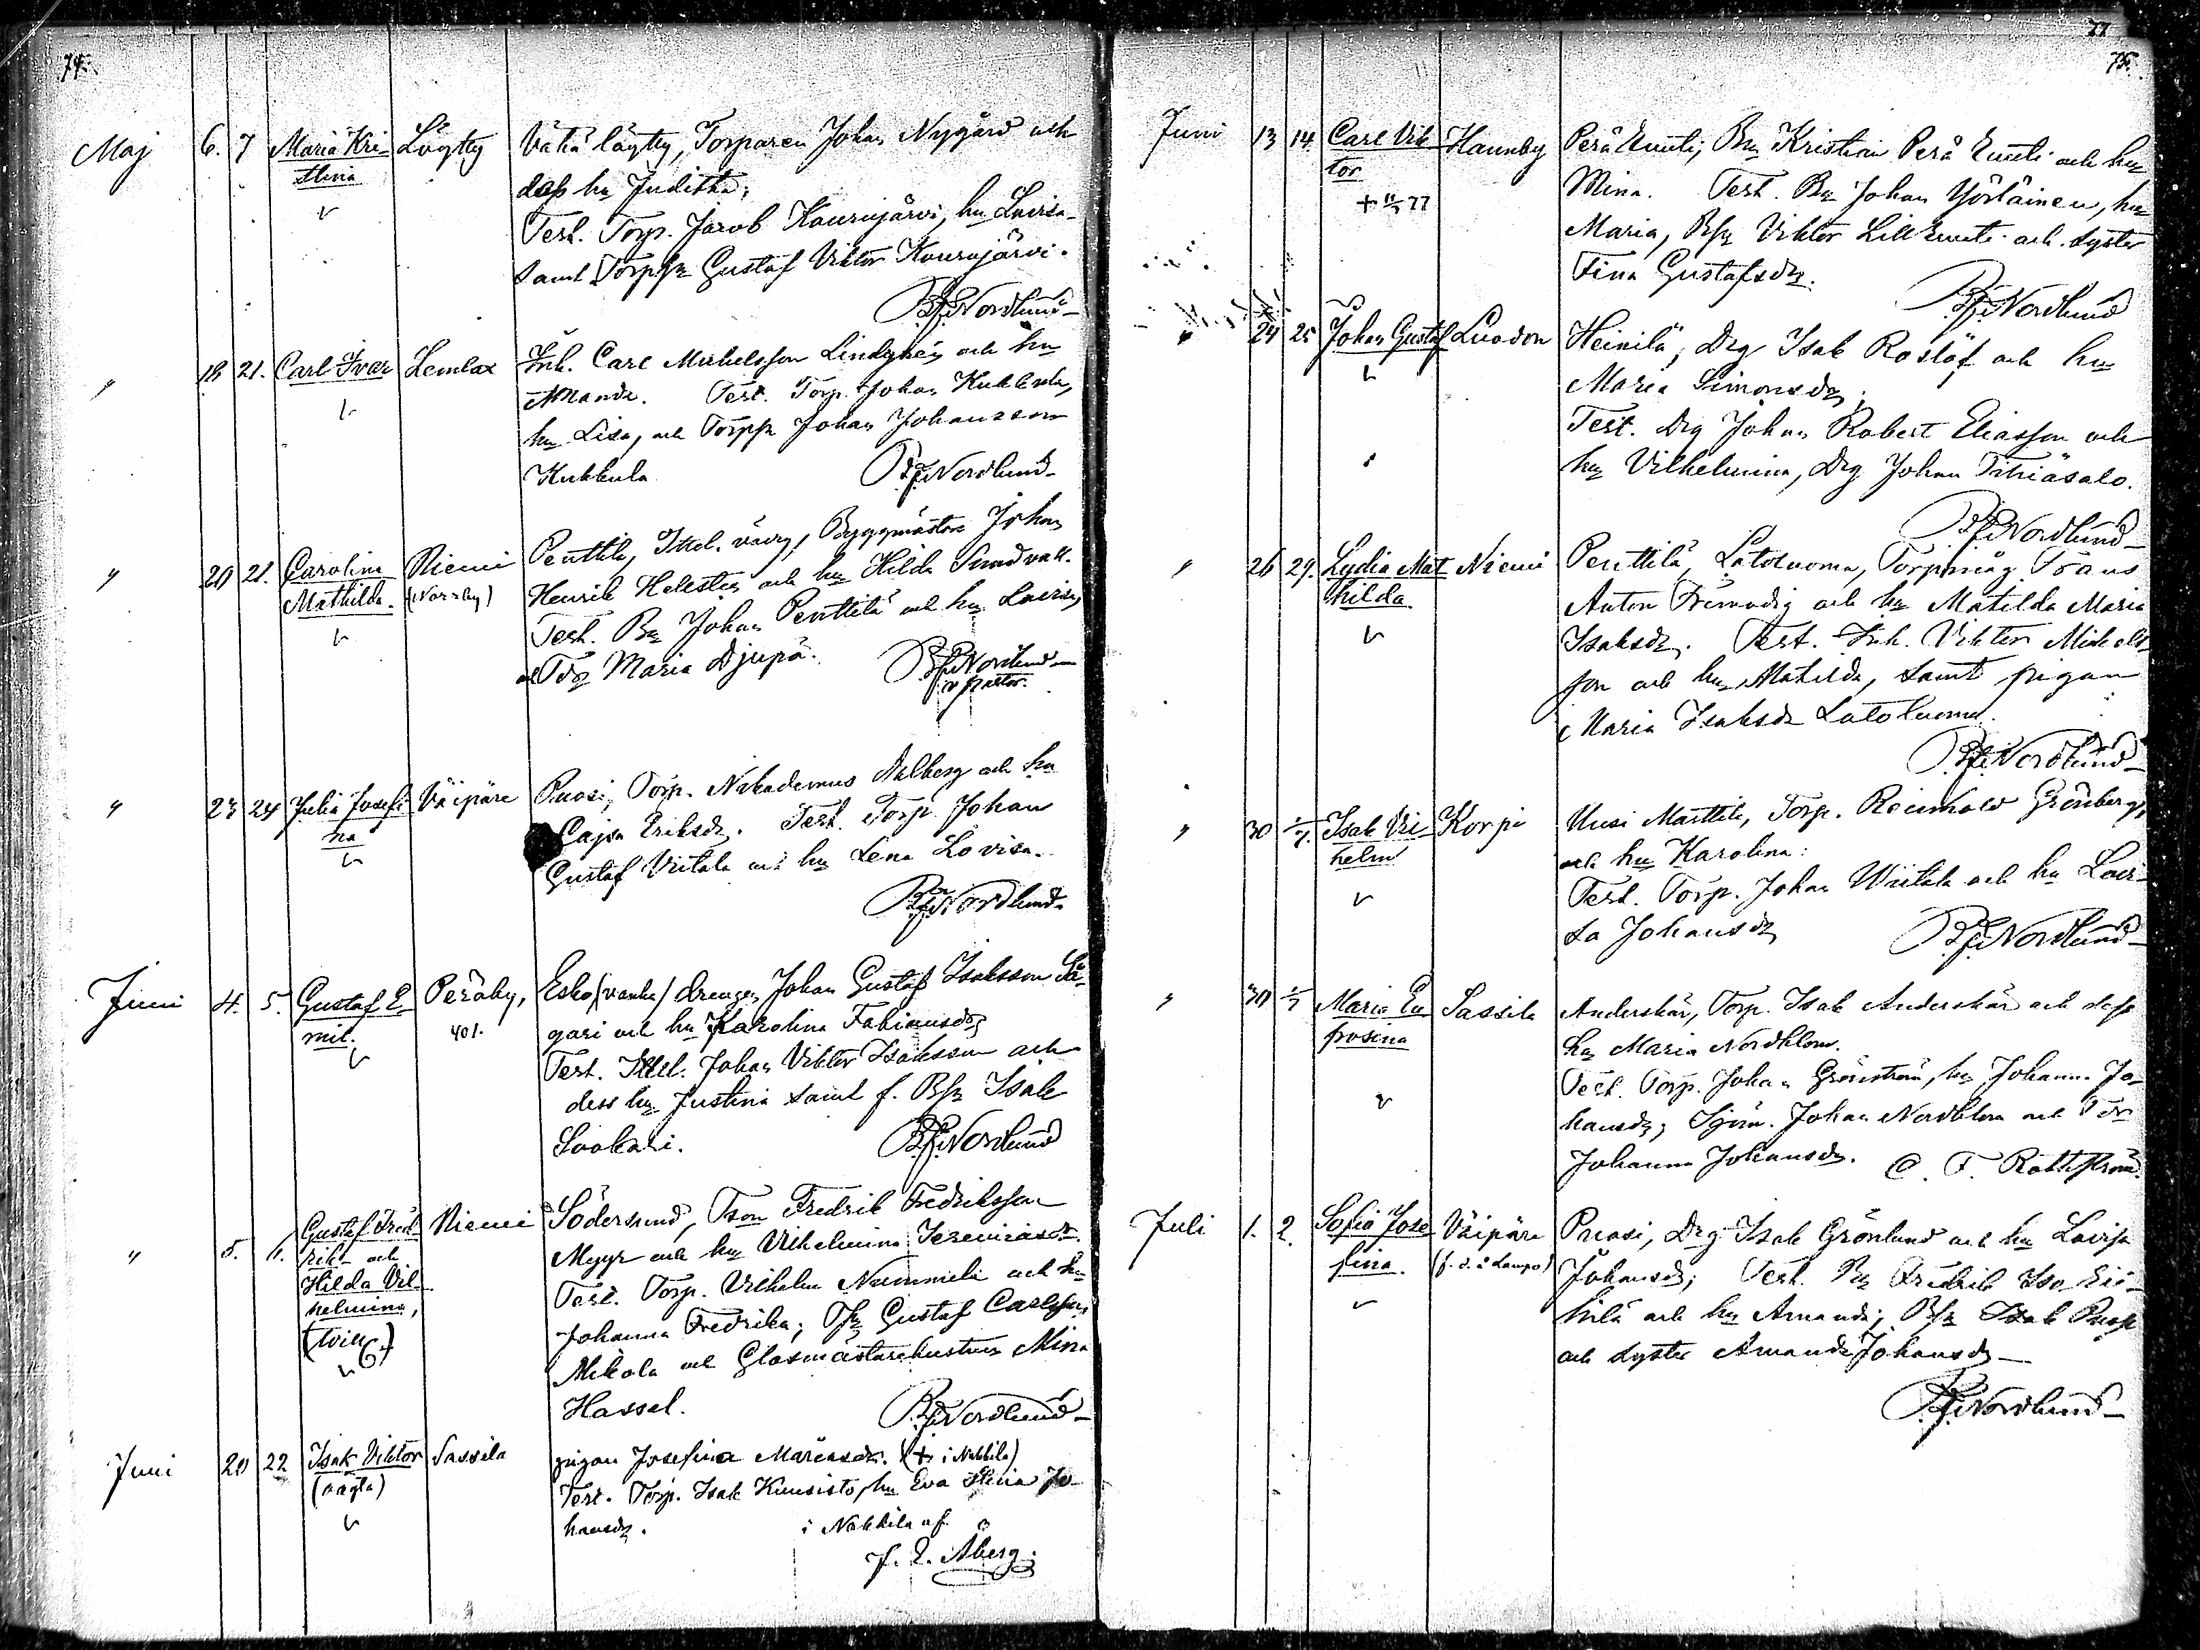 74.
Maj 6. 7 Maria Kri Löytty Vähä löytty, Torparen Johan Nygård och
stina dess hu Juditha;
Test. Torp. Jacob Kaurujärvi, hu Lovisa
samt Torpsn Gustaf Viktor Kaurujärvi.
Nordlund
" 18 21. Carl Ivar Lemlax Inh. Carl Mickelsson Lindgren och hu
Amanda. Test. Torp. Johan Kukkula,
hu Lisa, och Torpsn Johan Johansson
Kukkula Nordlund
" 20 21. Carolina Niemi Penttilä, Ittel. väg, Byggmästar Johan
Mathilda. (Norrby) Henrik Helesten och hu Hilda Sundvall.
Test. Bn Johan Penttilä och hu Lovisa,
och Tdr Maria Djupå. Nordlund
v pastor.
" 23 24 Julia Josefi Väipäre Puosi, Torp. Nikademus Dalberg och hu
na Cajsa Eriksdr. Test. Torp Johan
Gustaf Viitala och hu Lena Lovisa.
Nordlund
Juni 4. 5. Gustaf E Peräby, Esko (vanha) drengen Johan Gustaf Isaksson Sä
mil. 401. gari och hu Karolina Fabiansdr
Test. Ittel. Johan Viktor Isaksson och
dess hu Justina samt f. Bsn Isak
Sookari. Nordlund
" 5. 6. Gustaf Fred Niemi Södersund, Tson Fredrik Fredriksson
rik och Myyr och hu Vilhelmina Jeremiasdr.
Hilda Vil Test. Torp. Vilhelm Nummela och hu
helmina, Johanna Fredrika; Tsn Gustaf Carlsson
(tvill.) Mikola och Glasmästarehustrun Mina
Hassel. Nordlund
Juni 20 22 Isak Viktor Sassila pigan Josefina Mariasdr. (i Nakkila)
(oägta) Test. Torp. Isak Kuusisto, hu Eva Stina Jo
hansdr. i Nakkila af
J. E. Åberg.
77
75.
Juni 13 14. Carl Vik Hannby Perä Eunti; Bn Kristian Perä Eunti och hu
tor Mina. Test. Bn Johan Yörläinen, hu
77 Maria, Bsn Viktor Lill Eunti och syster
Fina Gustafsdr.
Nordlund
" 24 25 Johan Gustaf Luodon Heinilä, Drg Isak Roslöf och hu
Maria Simonsdr;
Test. Drg Johan Robert Eliasson och
hu Vilhelmina, Drg Johan Tihiäsalo.
Nordlund
" 26 29. Lydia Mat Niemi Penttilä, Latoluoma, Torpmåg Frans
hilda. Anton Fremndig och hu Matilda Maria
Isaksdr. Test. Inh. Viktor Mickels
son och hu Matilda, samt pigan
Maria Isaksdr Latoluoma.
Nordlund
" 30 1/7. Isak Vil Korpi Uusi Marttila, Torp. Reinhold Grönberg,
helm och hu Karolina:
Test. Torp. Johan Wiitala och hu Lovi
sa Johansdr
Nordlund
" 30 1/7 Maria Eu Sassila Anderskär, Torp. Isak Anderskär och dess
frosina hu Maria Nordblom.
Test. Torp. Johan Grönström, hu Johanna Jo
hansdr; Sjöm. Johan Nordblom och Tdr
Johanna Johansdr. C. F. Rothström
Juli 1. 2. Sofia Jose Väipäre Puosi, Drg Isak Grönlund och hu Lovisa
fina. (f. d. i Lampo) Johansdr; Test. Bn Fredrik Iso Ei
kilä och hu Amanda; Bsn Isak Puosi
och syster Amanda Johansdr
Nordlund